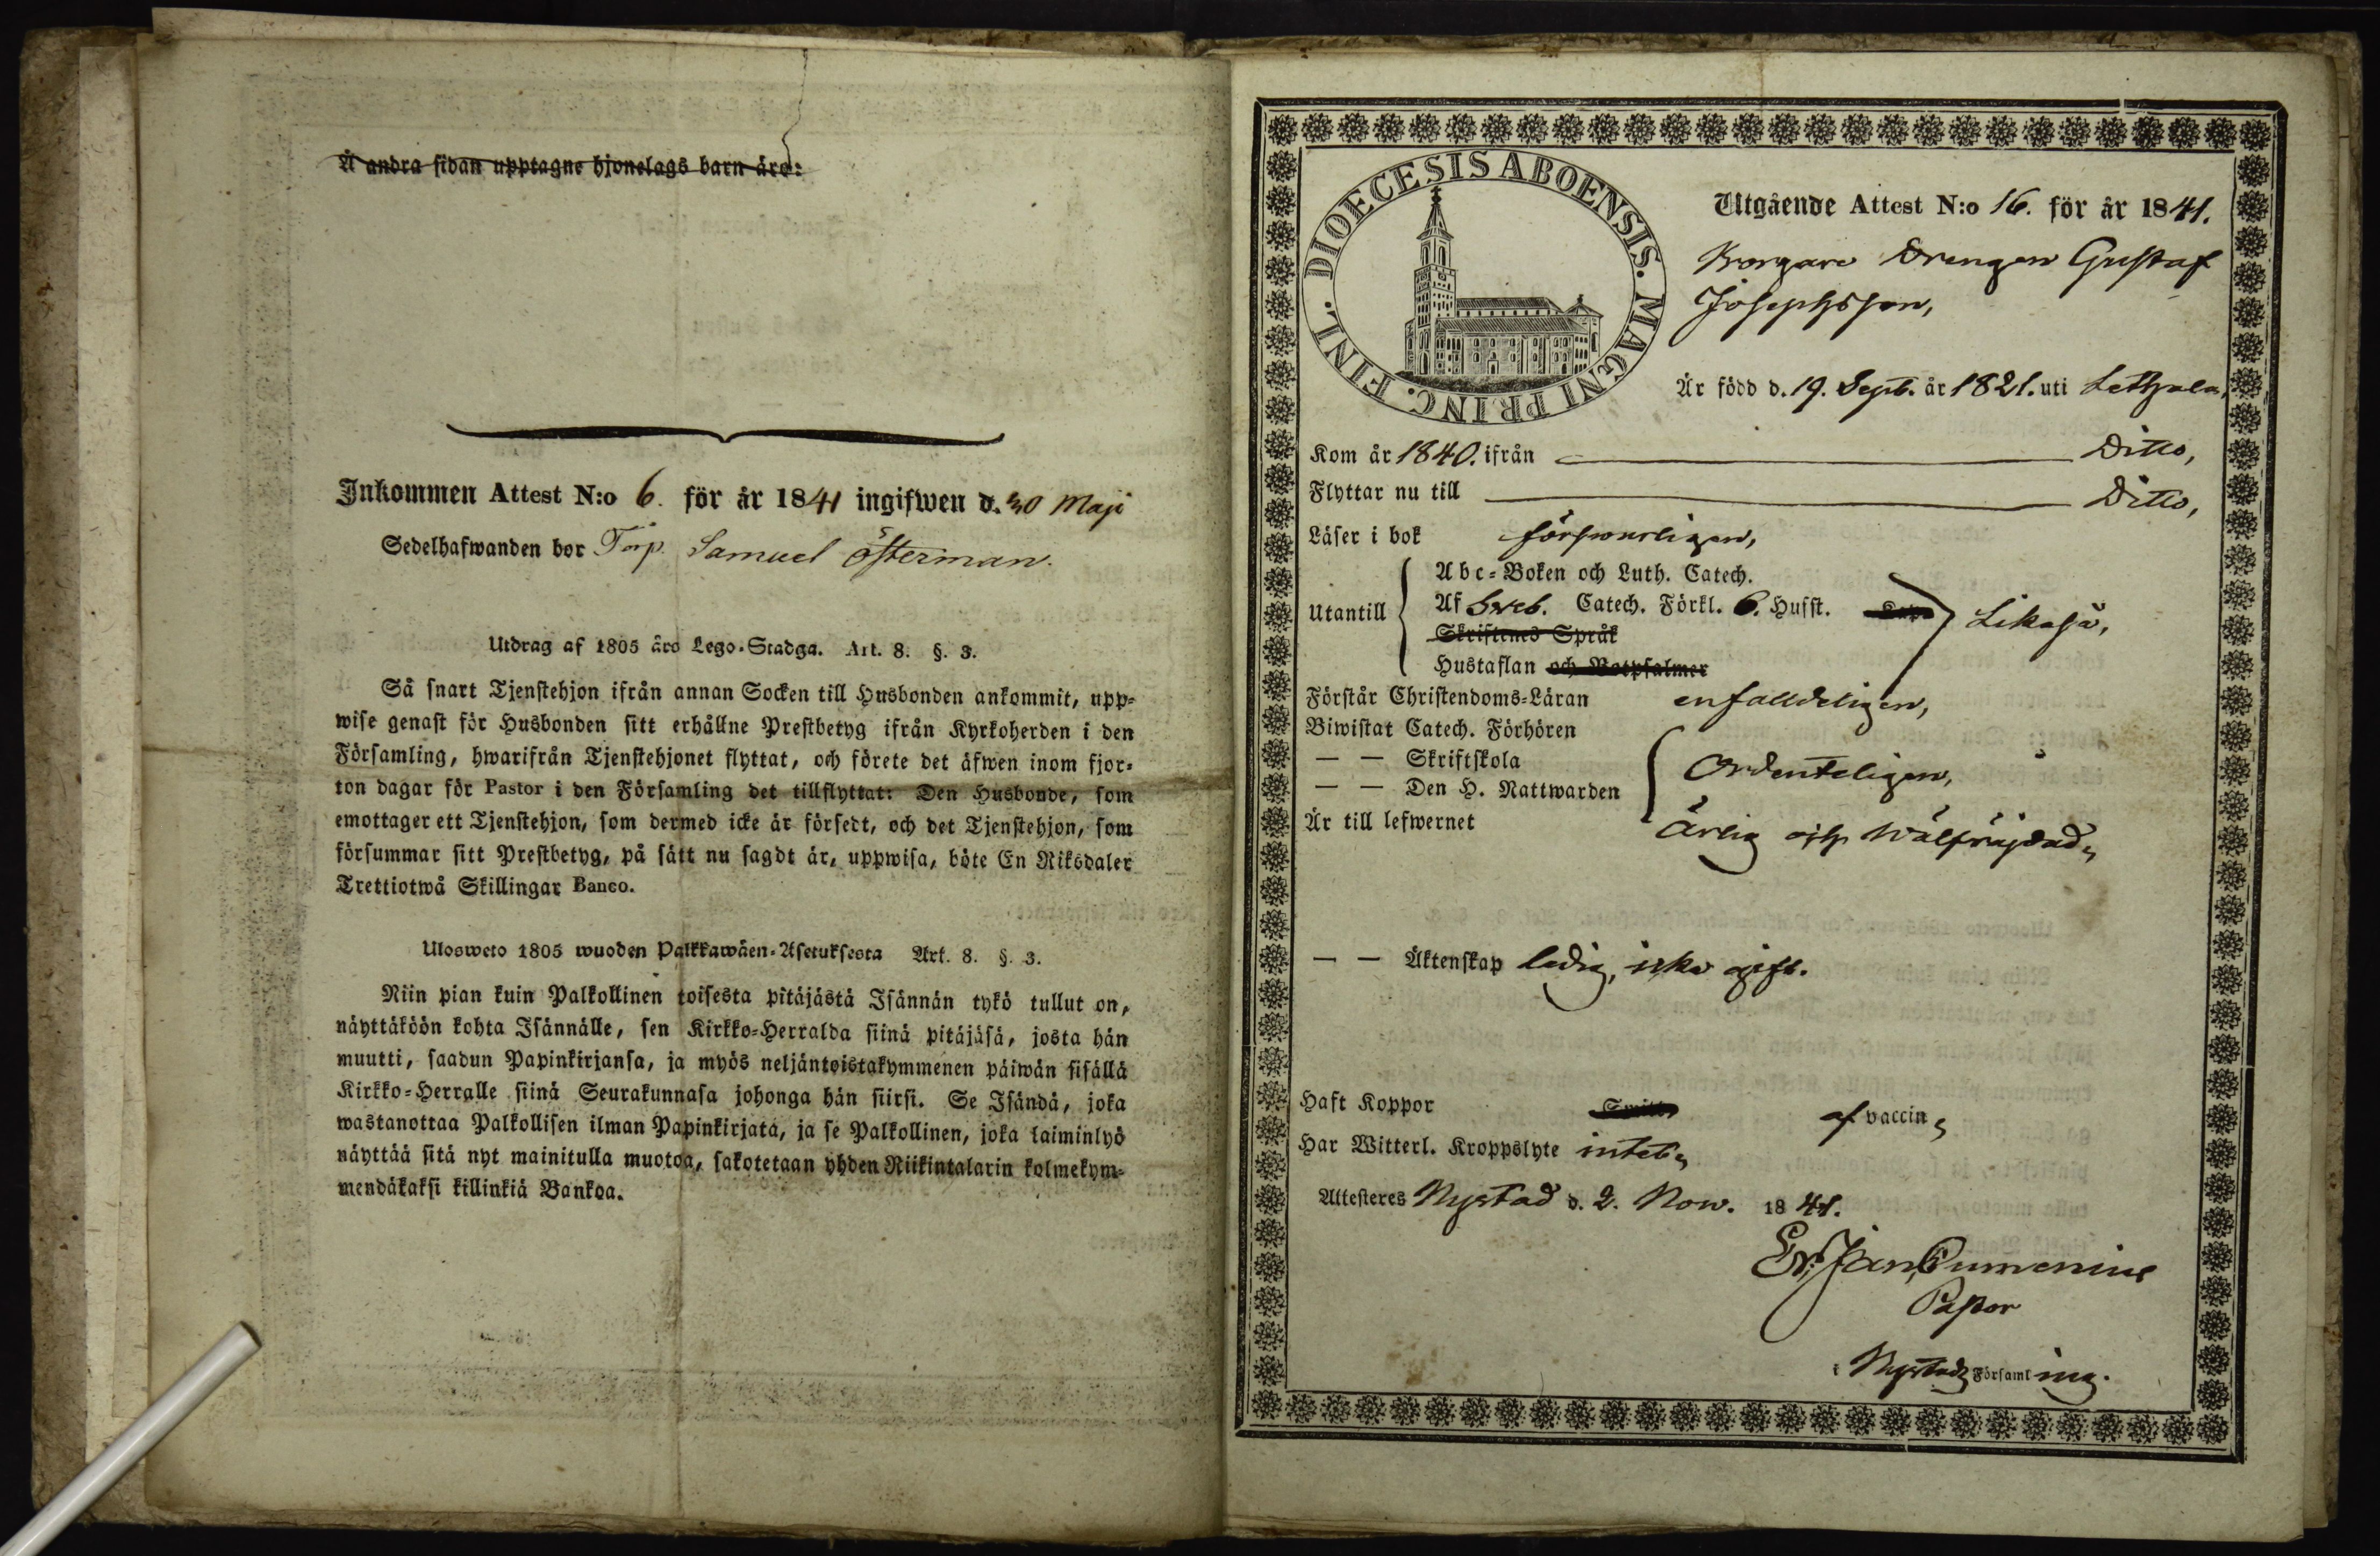 Å andra sidan upptagne hjonelags barn äro:
Inkommen Attest N:o 6. för år 1841 ingifwen d. 30 Maji
Sedelhafwanden bor Torp. Samuel Österman.
Utdrag af 1805 års Lego-Stadga. Art. 8. §. 3.
Så snart Tjenstehjon ifrån annan Socken till Husbonden ankommit, upp-
wise genast för Husbonden sitt erhållne Prestbetyg ifrån Kyrkoherden i den
Församling, hwarifrån Tjenstehjonet flyttat, och förete det äfwen inom fjor-
ton dagar för Pastor i den Församling det tillflyttat: Den Husbonde, som
emottager ett Tjenstehjon, som dermed icke är försedt, och det Tjenstehjon, som
försummar sitt Prestbetyg, på sätt nu sagdt är, uppwisa, böte En Riksdaler
Trettiotwå Skillingar Banco.
Ulosweto 1805 wuoden Palkkawäen-Asetuksesta Art. 8. §. 3.
Niin pian kuin Palkollinen toisesta pitäjästä Isännän tykö tullut on,
näyttäköön kohta Isännälle, sen Kirkko-Herralda siinä pitäjäsä, josta hän
muutti, saadun Papinkirjansa, ja myös neljäntoistakymmenen päiwän sisällä
Kirkko-Herralle siinä Seurakunnasa johonga hän siirsi. Se Isändä, joka
wastanottaa Palkollisen ilman Papinkirjata, ja se Palkollinen, joka laiminlyö
näyttää sitä nyt mainitulla muotoa, sakotetaan yhden Riikintalarin kolmekym-
mendäkaksi killinkiä Bankoa.
DIOECESIS ABOENSIS. MAGNI PRINC. FINL.
Utgående Attest N:o 16. för år 1841.
Borgare Drengen Gustaf
Josephsson,
Är född d. 19. Sept. år 1821. uti Letthala,
Kom år 1840. ifrån Ditto,
Flyttar nu till Ditto,
Läser i bok försvarligen,
Abc-Boken och Luth. Catech.
Utantill Af Sveb. Catech. Förkl. 6. Hufst. Likaså,
Skriftenes Språk
Hustaflan och Botpsalmer
Förstår Christendoms-Läran enfalldeligen,
Biwistat Catech. Förhören
— — Skriftskola Ordenteligen,
— — Den H. Nattwarden
Är till lefwernet Ärlig och Wälfräjdad,
— — Äktenskap ledig, icke gift.
Haft Koppor af vaccin,
Har Witterl. Kroppslyte intet,
Attesteres Nystad d. 2. Nov. 1841.
Pastor
i Nystads Församling.